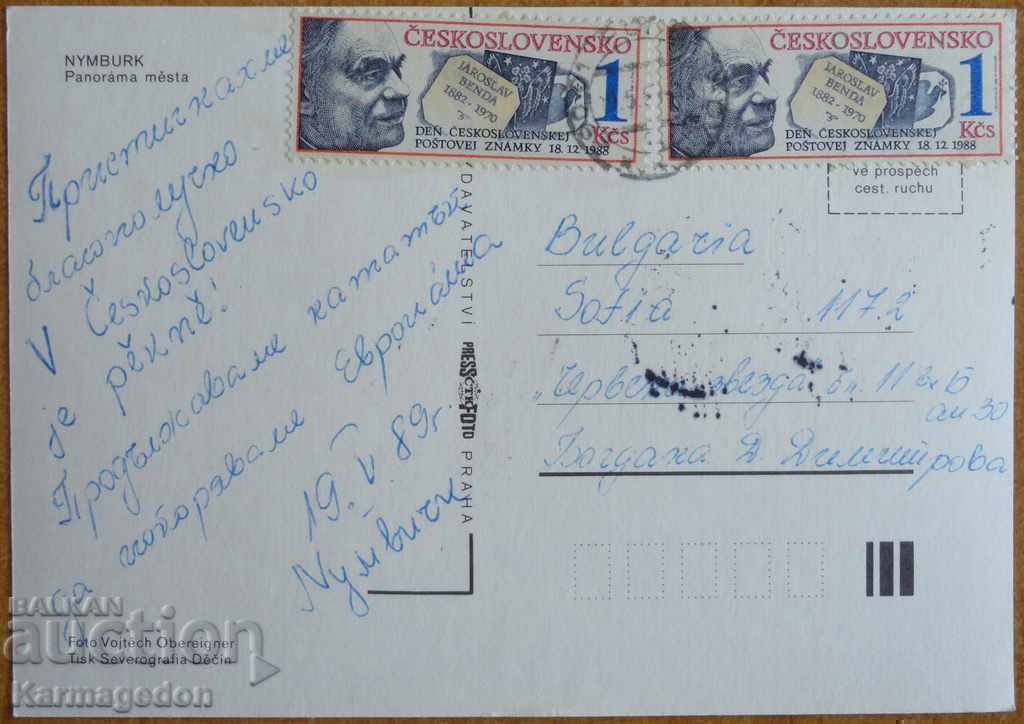 NYMBURK
Panoráma města
Пристигнахме
благополучно
V Československo
je pěkně!
Продължаваме нататък
да покоряваме Европа
19. V 89г.
Нумбурк
VYDAVATELSTVÍ PRESSFOTO PRAHA
Foto Vojtěch Obereigner
Tisk Severografia Děčín
ČESKOSLOVENSKO
JAROSLAV
BENDA
1882 - 1970
1 Kčs
DEŇ ČESKOSLOVENSKEJ
POŠTOVEJ ZNÁMKY 18.12.1988
ČESKOSLOVENSKO
JAROSLAV
BENDA
1882 - 1970
1 Kčs
DEŇ ČESKOSLOVENSKEJ
POŠTOVEJ ZNÁMKY 18.12.1988
ve prospěch
cest. ruchu
Bulgaria
Sofia 1172
"Червена звезда" бл. 11 вх Б
ап 30
Богдана Д. Димитрова
BALKAN
auction
Karmagedon